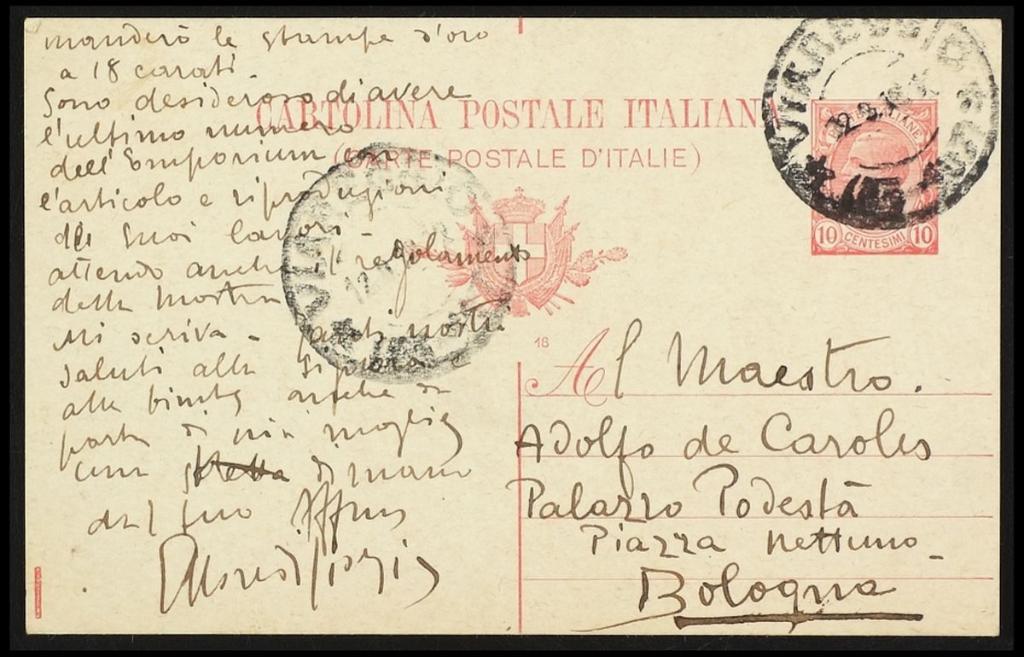 manderò le stampe d'oro
a 18 carati.
Sono desideroso di avere
l'ultimo numero
dell'Emporium con
l'articolo e riproduzioni
dei suoi lavori -
attendo anche il regolamento
della Mostra
Mi scriva - tanti nostri
saluti alla Signora e
alla bimba anche da
parte di mia moglie
una stretta di mano
dal suo Affmo
CARTOLINA POSTALE ITALIANA
(CARTE POSTALE D'ITALIE)
VIAREGGIO
10 CENTESIMI 10
18
Al Maestro.
Adolfo de Carolis
Palazzo Podestà
Piazza Nettuno -
Bologna